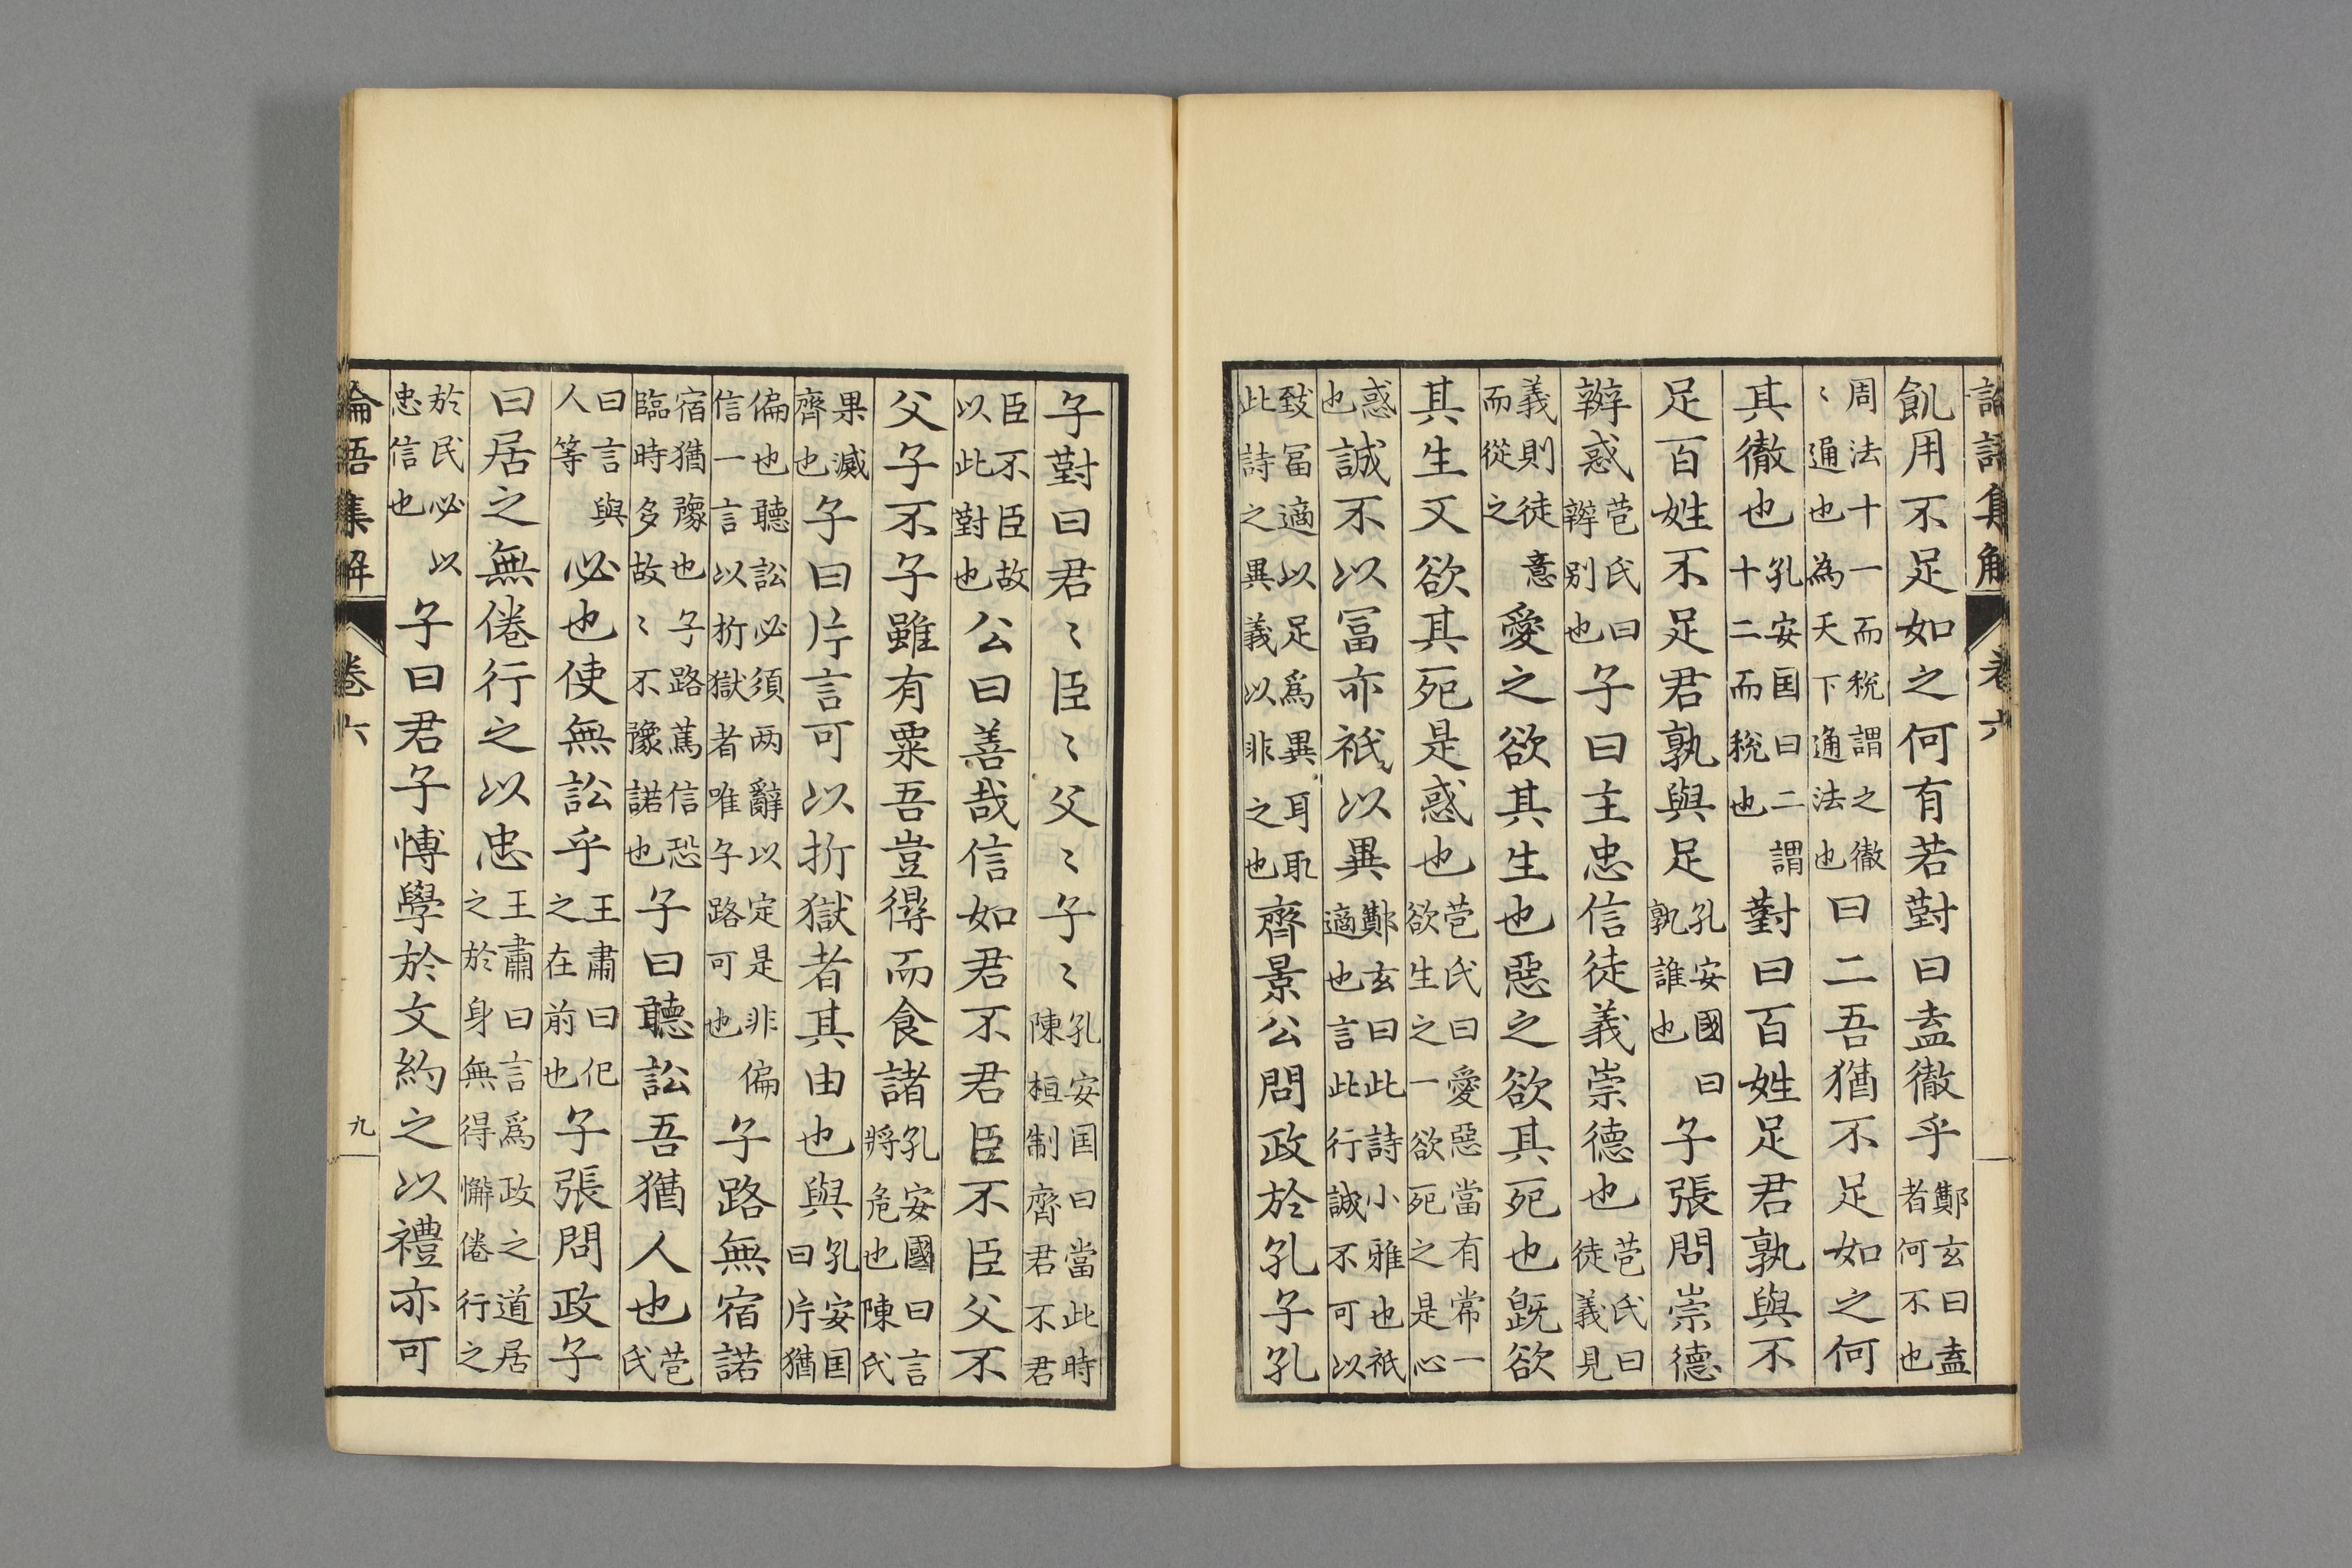 論語集解 卷六
飢用不足如之何有若對曰盍徹乎鄭玄曰盍者何不也
周法十一而稅謂之徹〻通也為天下通法也曰二吾猶不足如之何
其徹也孔安国曰二謂十二而稅也對曰百姓足君孰與不
足百姓不足君孰與足孔安國曰孰誰也子張問崇德
辧惑苞氏曰辧別也子曰主忠信徒義崇德也苞氏曰徒義見
義則徒意而從之愛之欲其生也惡之欲其死也既欲
其生又欲其死是惑也苞氏曰愛惡當有常一欲生之一欲死之是心
惑也誠不以冨亦祇以異鄭玄曰此詩小雅也祇適也言此行誠不可以
致冨適以足爲異耳取此詩之異義以非之也齊景公問政於孔子孔
子對曰君〻臣〻父〻子〻孔安国曰當此時陳桓制齊君不君
臣不臣故以此對也公曰善哉信如君不君臣不臣父不
父子不子雖有粟吾豈得而食諸孔安國曰言將危也陳氏
果滅齊也子曰片言可以折獄者其由也與孔安国曰片猶
偏也聽訟必須两辭以定是非偏信一言以折獄者唯子路可也子路無宿諾
宿猶豫也子路萬信恐臨時多故〻不豫諾也子曰聽訟吾猶人也苞氏
曰言與人等必也使無訟乎王肅曰化之在前也子張問政子
曰居之無倦行之以忠王肅曰言爲政之道居之於身無得懈倦行之
於民必以忠信也子曰君子博學於文約之以禮亦可
論語集解 卷六 九